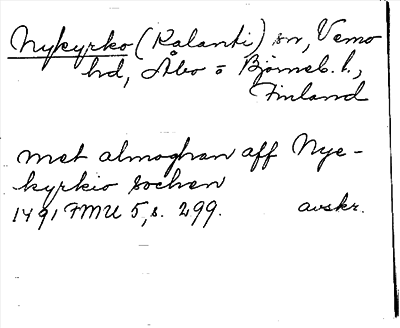 Nykyrko (Kalanti) sn, Vemo
hd, Åbo o Björneb. l.,
Finland
met almoghan aff Nye-
kyrkio sochen
1491 FMU 5, s. 299. avskr.